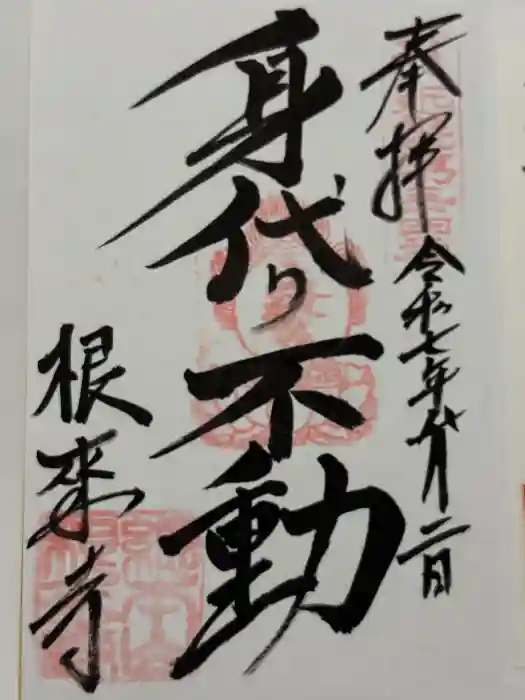 奉拝
令和七年 月二日
身代り不動
根来寺